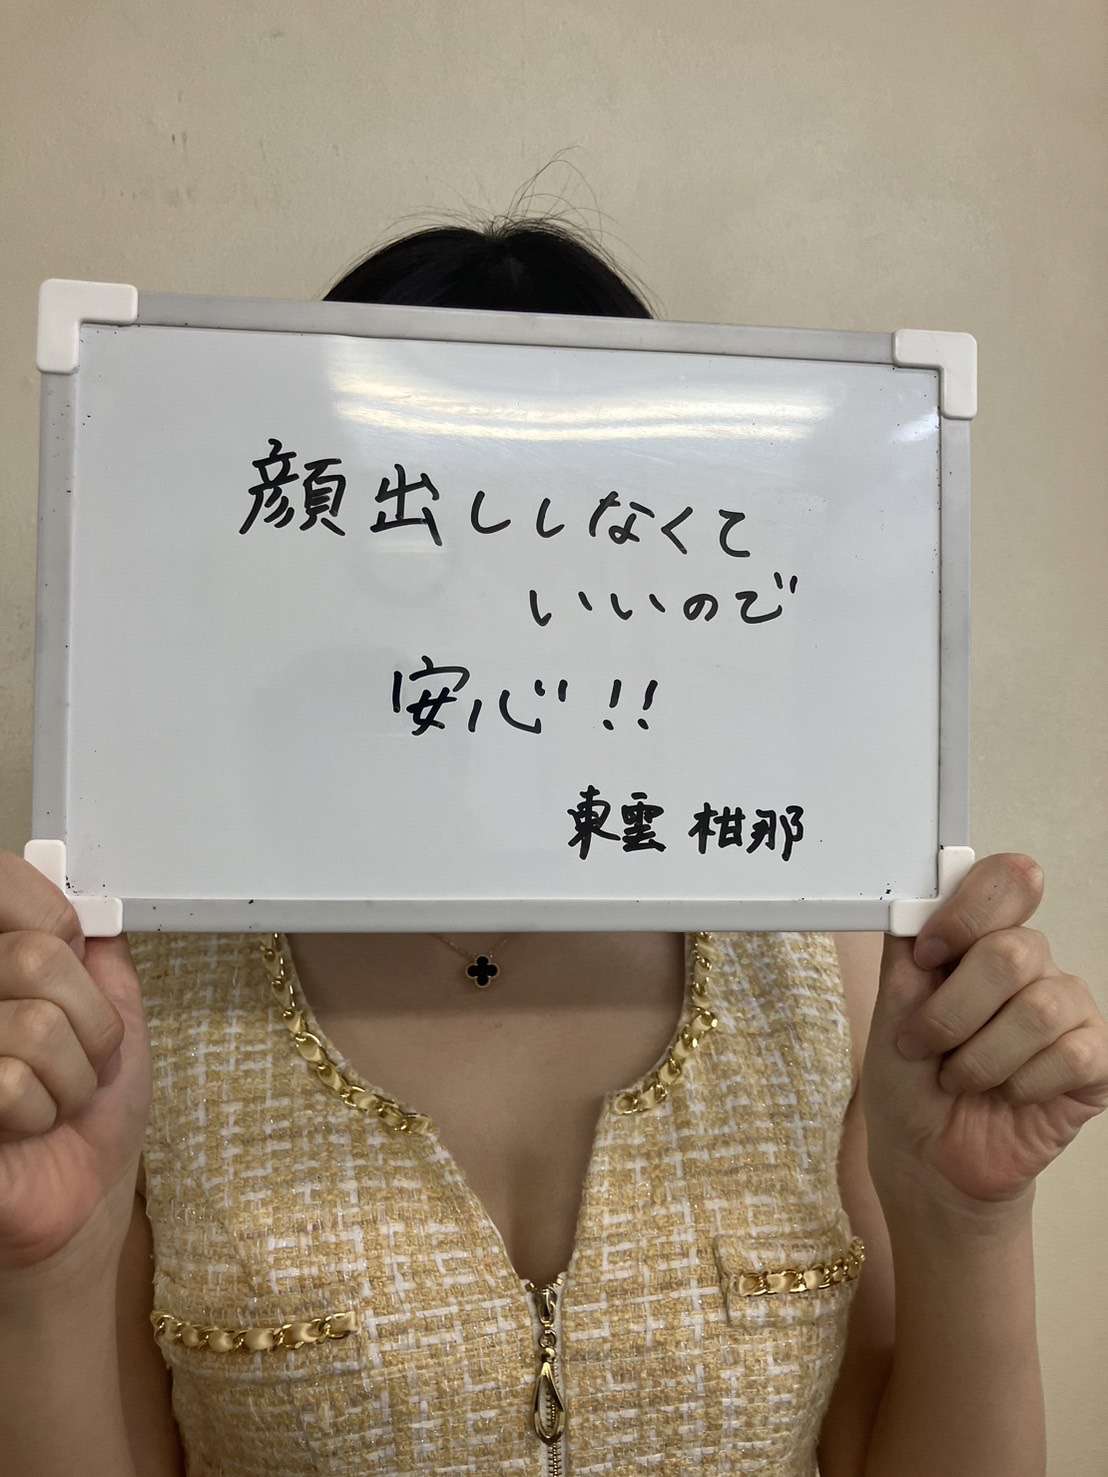 顔出ししなくて
いいので
安心!!
東雲 柑那